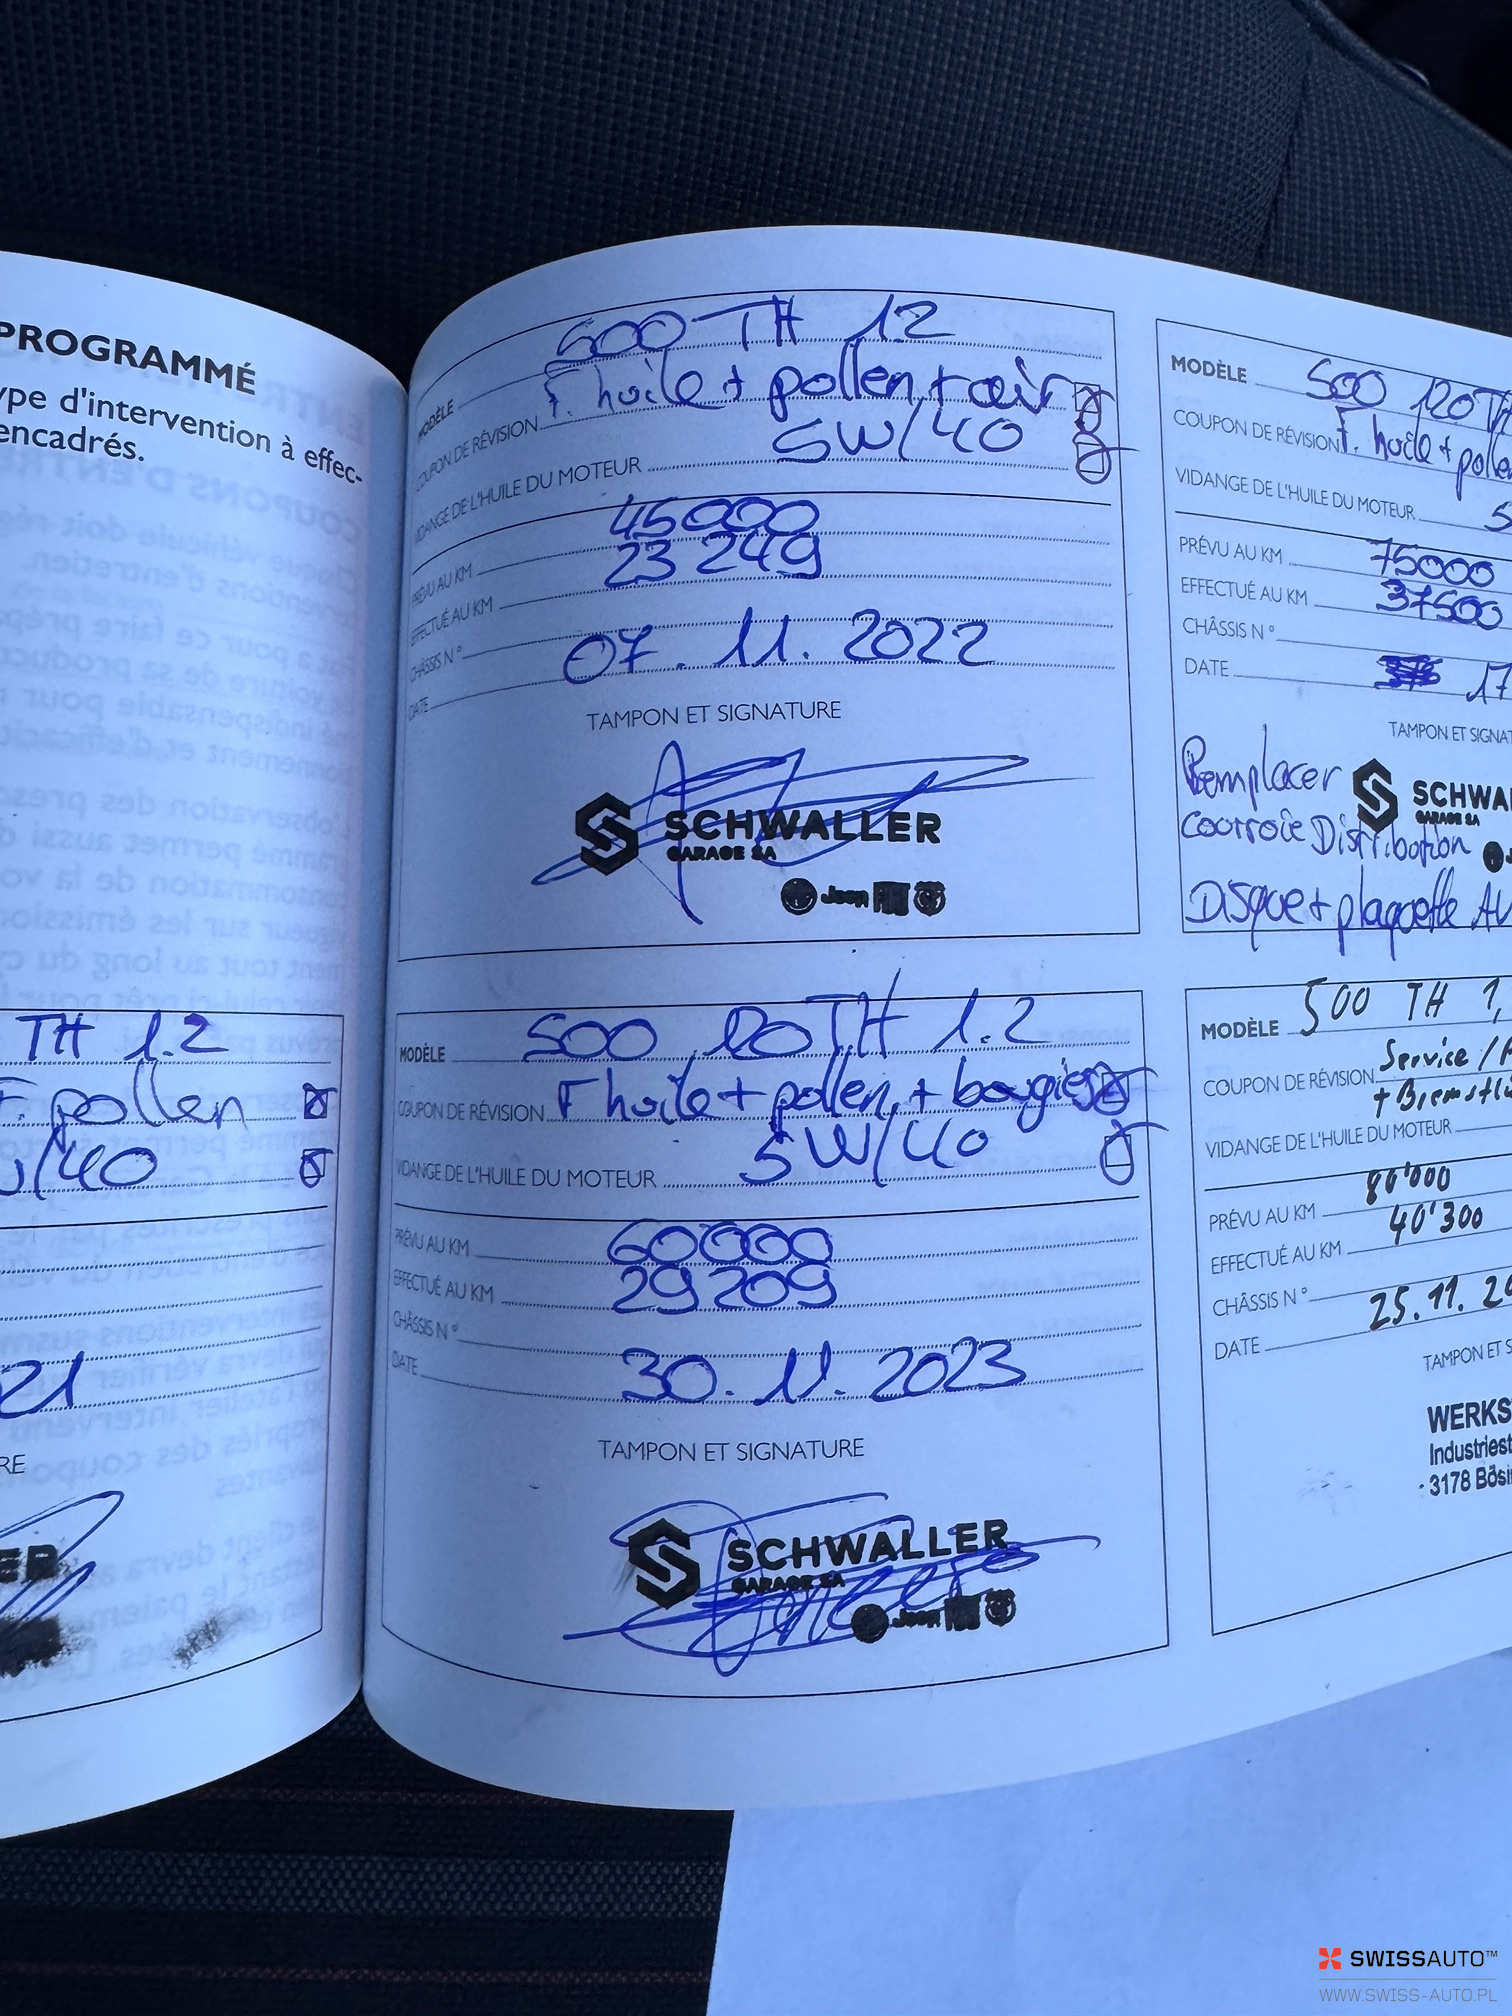 PROGRAMMÉ
ype d'intervention à effec-
encadrés.
TH 1.2
F. pollen
/40
21
RE
ER
500 TH 12
MODÈLE
F. huile + pollen + air
COUPON DE RÉVISION
5W/40
VIDANGE DE L'HUILE DU MOTEUR
45000
PRÉVU AU KM
23 249
EFFECTUÉ AU KM
CHÂSSIS N°
07.11.2022
DATE
TAMPON ET SIGNATURE
SCHWALLER
GARAGE SA
Jeep
MODÈLE 500 120TH 1.2
COUPON DE RÉVISION F huile + pollen + bougies
VIDANGE DE L'HUILE DU MOTEUR 5W/40
PRÉVU AU KM 60000
EFFECTUÉ AU KM 29209
CHÂSSIS N°
DATE 30.11.2023
TAMPON ET SIGNATURE
SCHWALLER
GARAGE SA
Jeep
MODÈLE 500 120TH
COUPON DE RÉVISION F. huile + pollen
VIDANGE DE L'HUILE DU MOTEUR 5
PRÉVU AU KM 75000
EFFECTUÉ AU KM 37500
CHÂSSIS N°
DATE 17
TAMPON ET SIGNAT
Remplacer
SCHWA
GARAGE SA
Courroie Distribution
Disque + plaquette AV
MODÈLE 500 TH 1,
Service /
COUPON DE RÉVISION
+ Bremsflü
VIDANGE DE L'HUILE DU MOTEUR
80'000
PRÉVU AU KM
40'300
EFFECTUÉ AU KM
CHÂSSIS N°
25.11.2
DATE
TAMPON ET S
WERKS
Industriest
3178 Bösi
SWISSAUTO™
WWW.SWISS-AUTO.PL